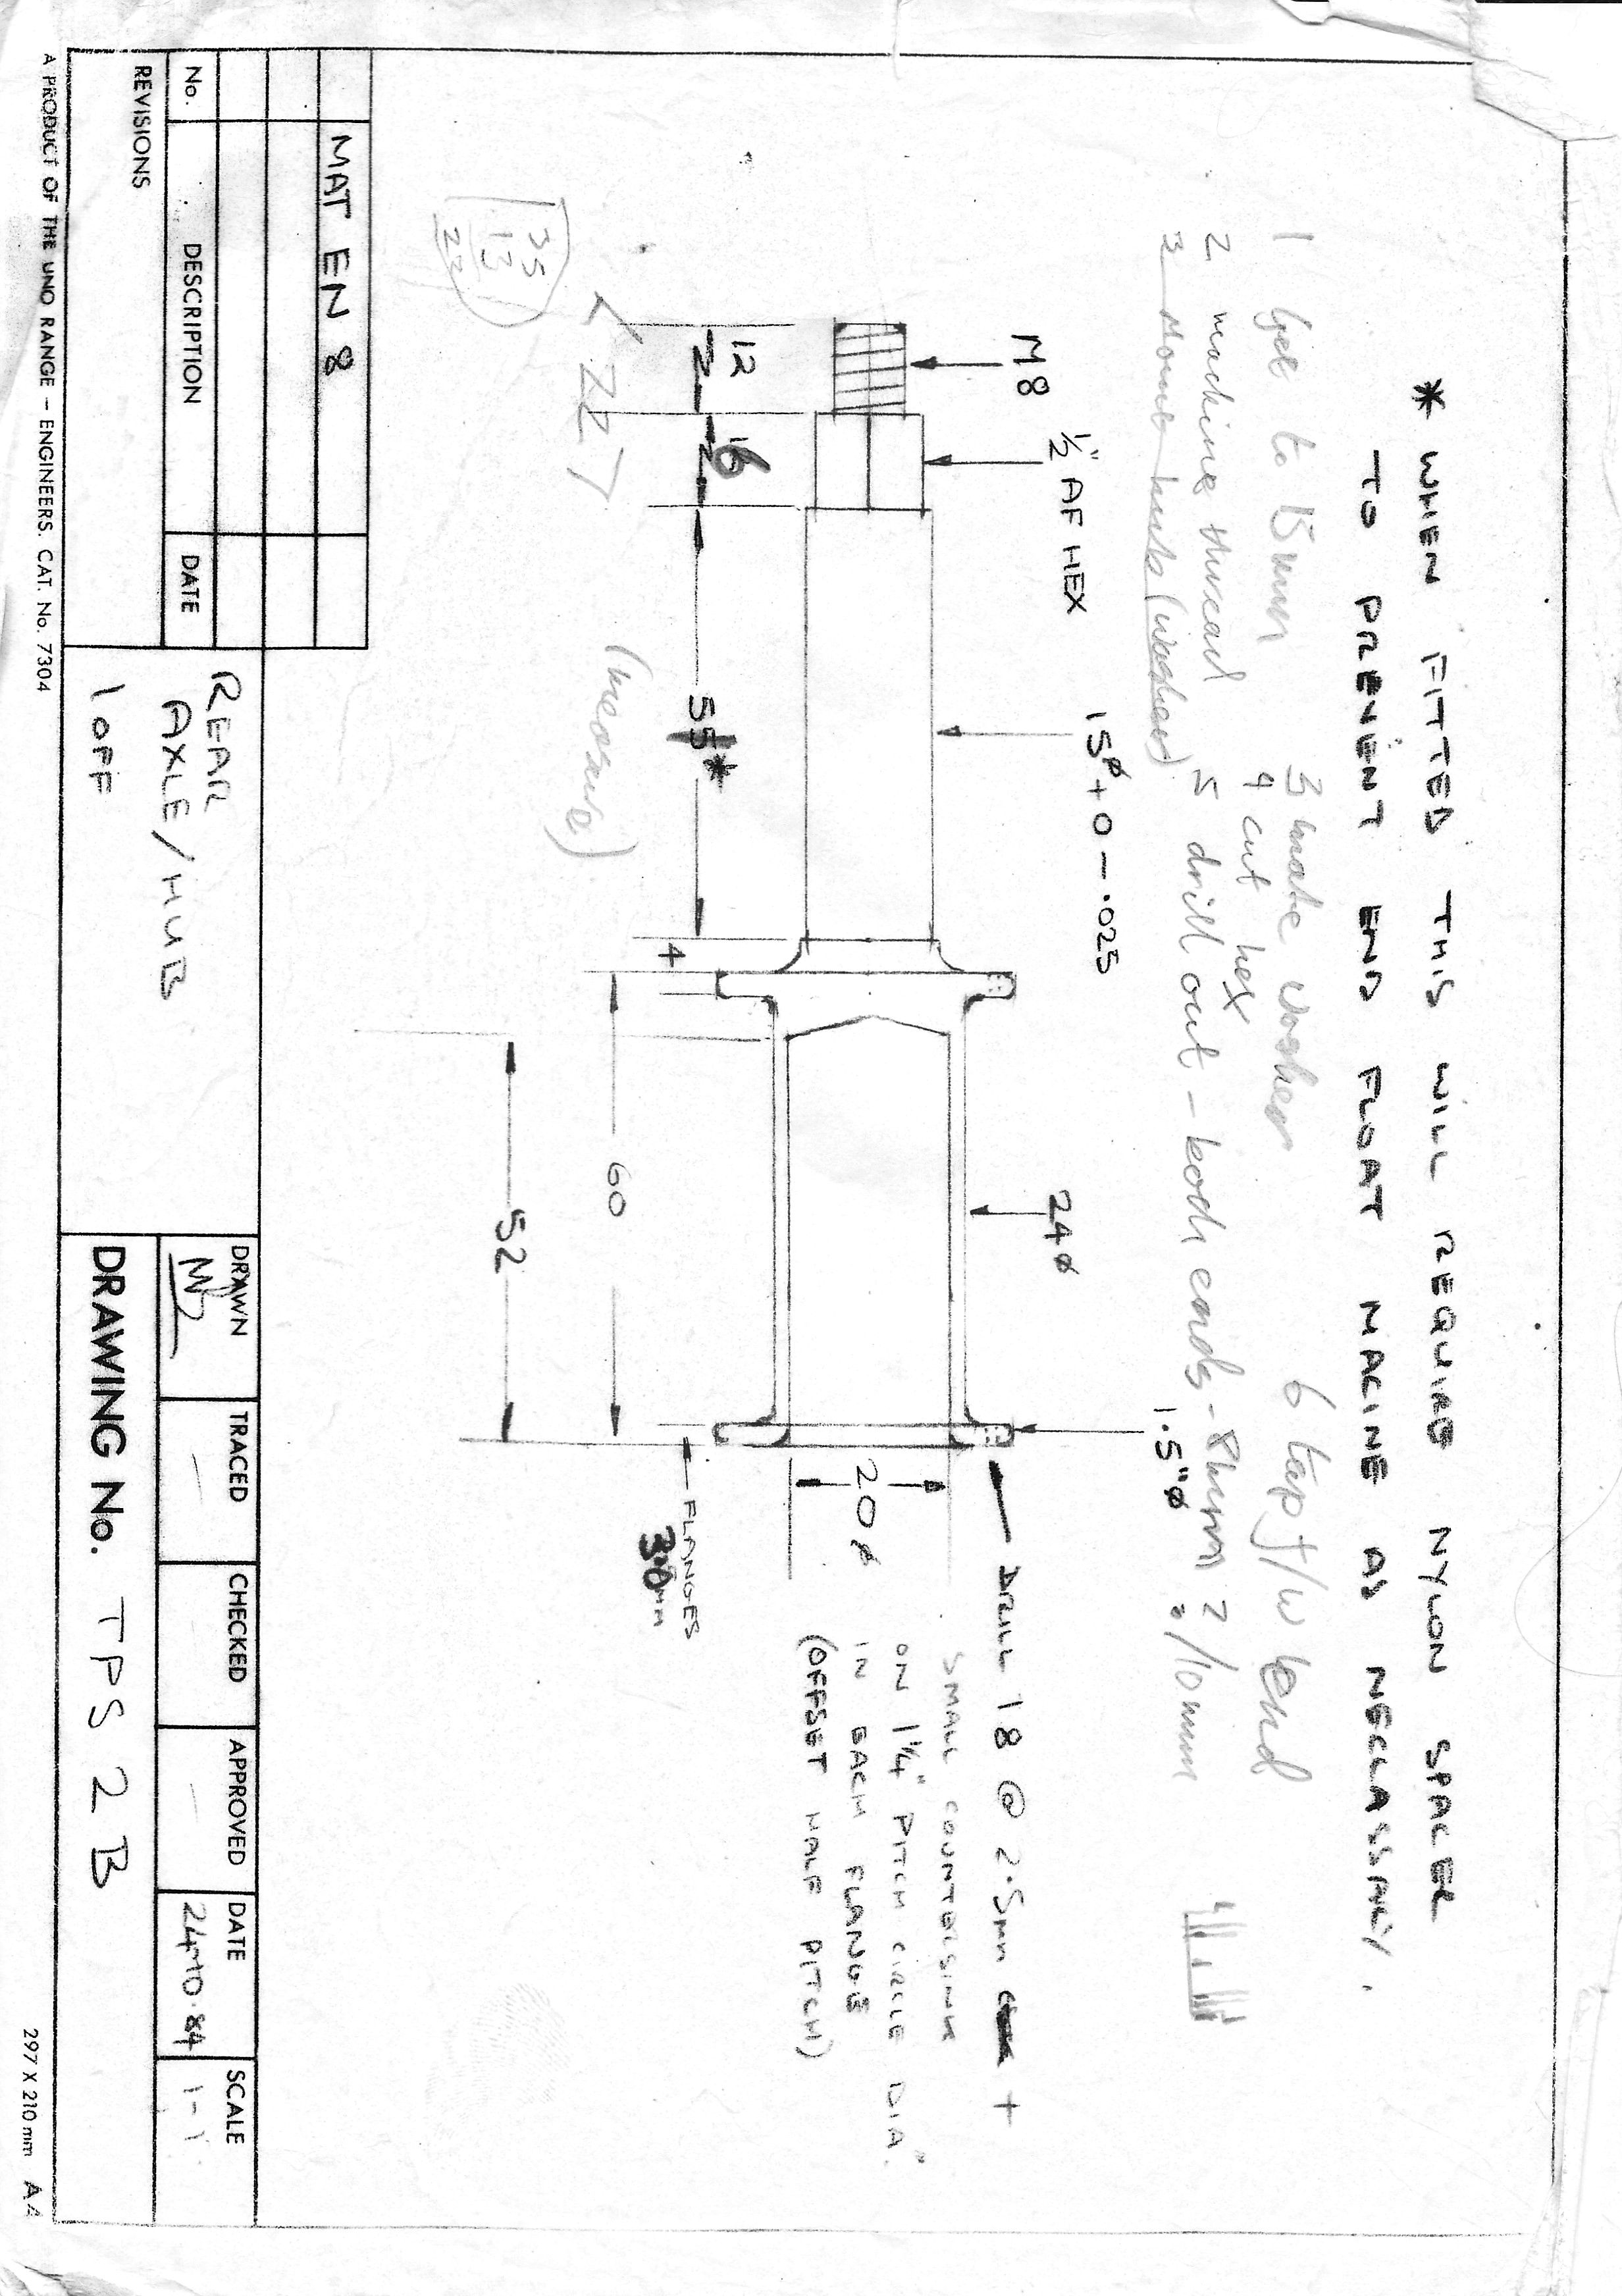 * WHEN FITTED THIS WILL REQUIRE NYLON SPACER
TO PREVENT END FLOAT MACINE AS NECCASSARY.
1 Get to 15mm
2 machine thread
3 Mount hub (washer)
3 make washer
4 cut hex
5 drill out - both ends - 8mm ? /10mm
6 tap f/w end
M8
½" AF HEX
15ø +0 -.025
24ø
1.5"ø
DRILL 18 @ 2.5mm +
SMALL COUNTERSINK
ON 1¼" PITCH CIRCLE DIA.
IN EACH FLANGE
(OFFSET HALF PITCH)
20ø
12
16
55*
4
FLANGES
3.0mm
60
52
< 22 >
(measure)
35
13
22
MAT EN 8
No.
DESCRIPTION
DATE
REVISIONS
REAR
AXLE/HUB
1 OFF
DRAWN
TRACED
CHECKED
APPROVED
DATE
SCALE
24.10.84
1-1
DRAWING No. TPS 2B
A PRODUCT OF THE UNO RANGE – ENGINEERS. CAT. No. 7304
297 X 210 mm A4